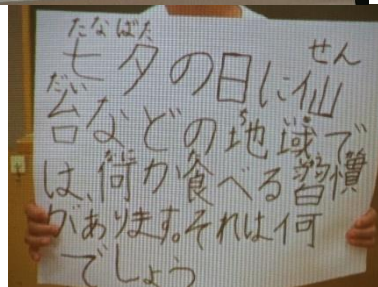 たなばた
七夕の日に仙
せん
台などの地域で
だい
は、何か食べる習慣
があります。それは何
でしょう